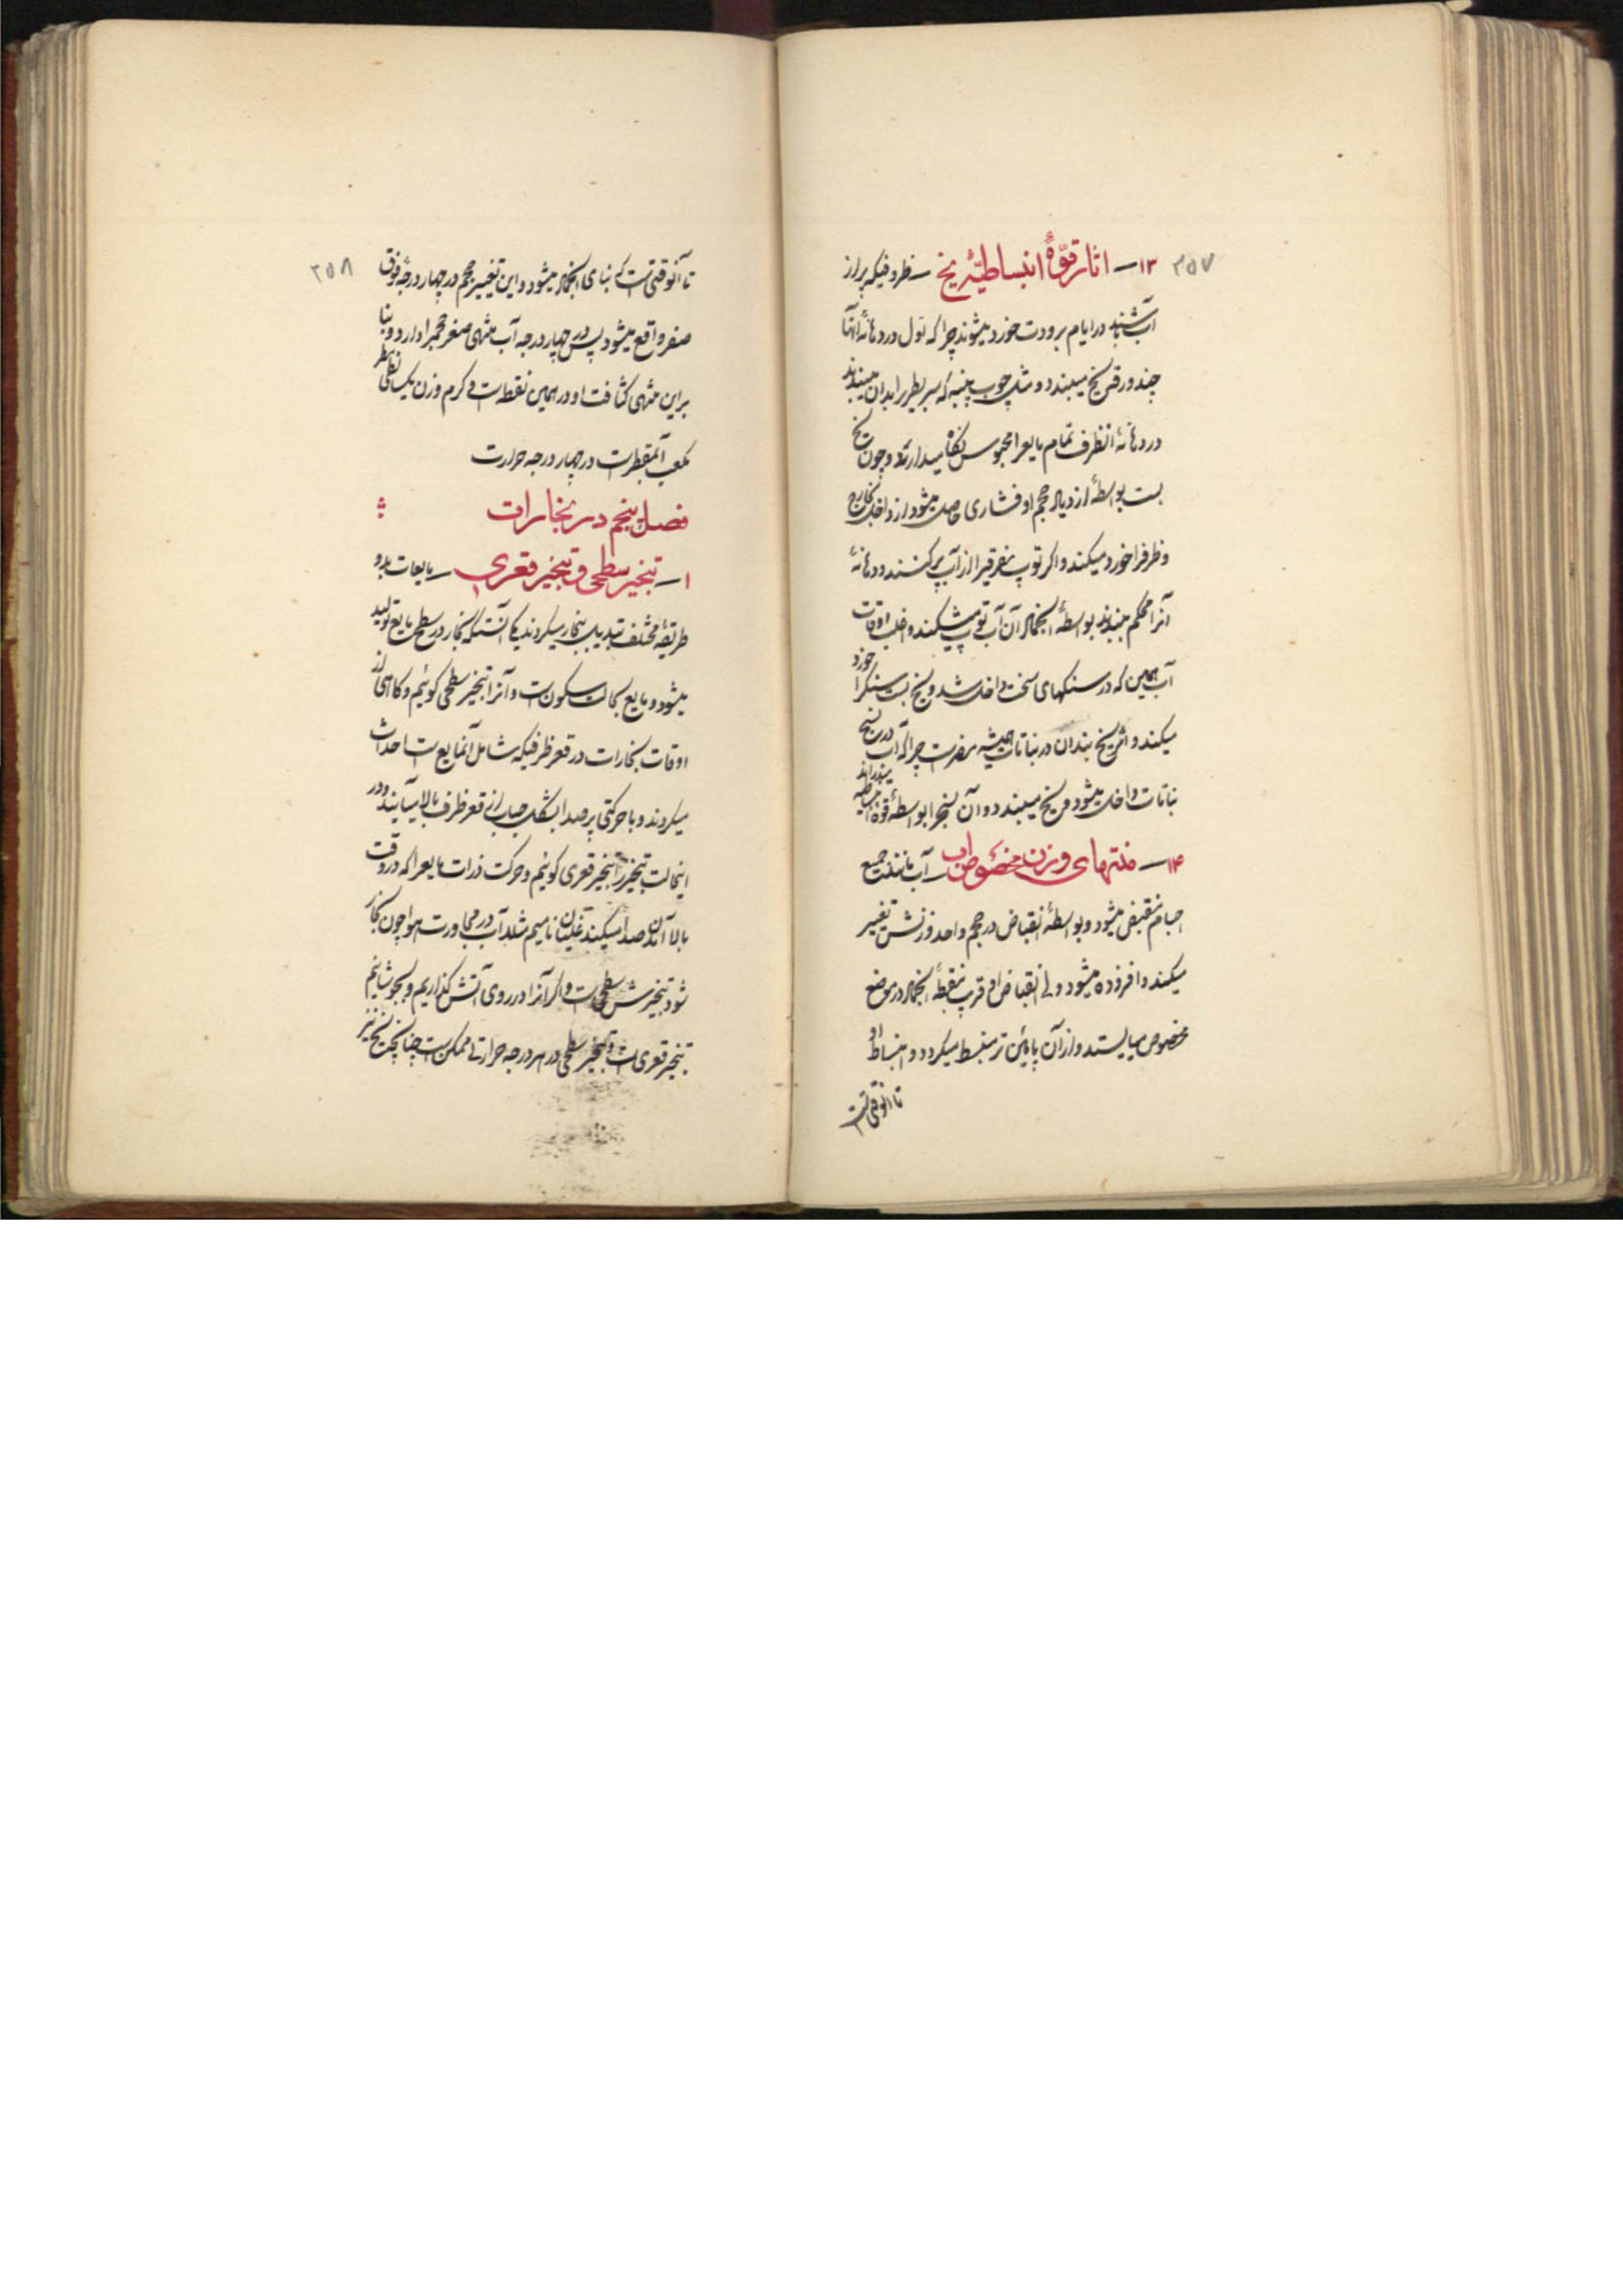 ۲۵۷
۱۳ــ اثار قوّهٔ انبساطیّهٔ یخ ــ ظروفیکه پر از
آب باشند در ایام برودت خورد میشوند چرا که اول در دهانهٔ انها
چند ورقی یخ میبندد و مثل چوب پنبه که سر بطری را بدان میبندند
در دهانهٔ انظرف تمام مایع را محبوس نکاه میدارند و چون یخ
بست بواسطهٔ ازدیاد حجم او فشاری حاصل میشود از داخل بخارج
و ظرف را خورد میکند و اکر توپ مفرقی را از آب پر کنند و دهانهٔ
آنرا محکم ببندند بواسطهٔ انجماد آن آب توپ میشکند و اغلب اوقات
آب همین که در سنکهای سخت داخل شد و یخ بست سنک را خورد
میکند و اثر یخ بندان در نباتات همیشه مضرست چرا که آب در نسج
نباتات داخل میشود و یخ میبندد و آن نسج را بواسطهٔ قوهٔ انبساطیه میدراند
۱۴ــ منتهای وزن مخصوص آب ــ آب مانند جمیع
اجسام منقبض میشود و بواسطهٔ انقباض در حجم واحد وزنش تغییر
میکند و افزوده میشود ولی انقباض او قرب بنقطهٔ انجماد در موضع
مخصوص میایستد و از آن پائین تر منبسط میکردد و انبساط او
تا انوقتی است
۲۵۸
تا آنوقتی است که بنای انجماد میشود و این تغییر حجم در چهار درجهٔ فوق
صفر واقع میشود پس در چهار درجه آب منتهای صغر حجم را دارد و بنا
براین منتهای کثافت او در همین نقطه است و کرم وزن یک سانطیمطر
مکعب آب مقطر است در چهار درجه حرارت
فصل پنجم در بخارات
۱ــ تبخیر سطحی و تبخیر قعری ــ مایعات بدو
طریقهٔ مختلف تبدیل ببخار میکردند یکی آنست که بخار در سطح مایع تولید
میشود و مایع بحالت سکون است و آنرا تبخیر سطحی کوئیم و کاهی از
اوقات بخارات در قعر ظرفیکه شامل آنمایع است احداث
میکردند و با حرکتی پر صدا بشکل حباب از قعر ظرف بالا میآیند و در
اینحالت تبخیر را تبخیر قعری کوئیم و حرکت ذرات مایع را که در وقت
بالا آمدن صدا میکنند غلیان نامیم مثلا آب در مجاورت هوا چون بخار
شود تبخیرش سطحی است و اکر آنرا در روی آتش کذاریم و بجوشانیم
تبخیر قعری است و تبخیر سطحی در هر درجه حرارتی ممکن است چنانچه یخ نیز